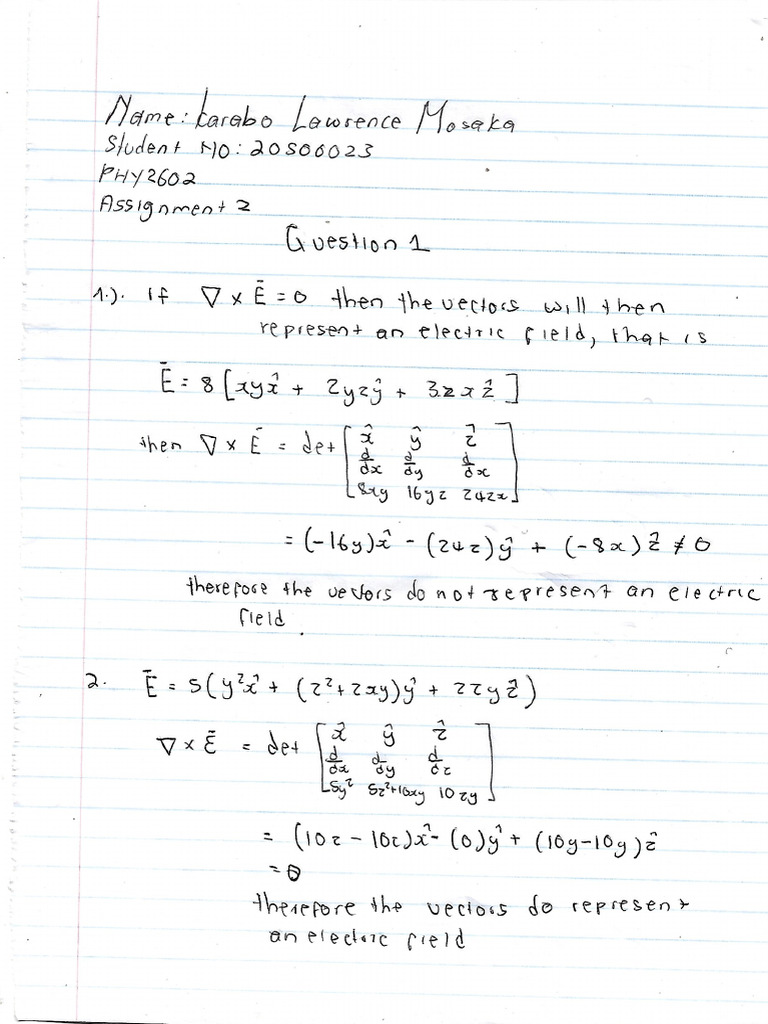 Name: Karabo Lawrence Mosaka
Student NO: 20506023
PHY2602
Assignment 2
Question 1
1.). If ∇ × Ē = 0 then the vectors will then
represent an electric field, that is
Ē = 8 [xyx̂ + 2yzŷ + 3zxẑ]
then ∇ × Ē = det [x̂ ŷ ẑ
d/dx d/dy d/dx
8xy 16yz 24zx]
= (-16y)x̂ - (24z)ŷ + (-8x)ẑ ≠ 0
therefore the vectors do not represent an electric
field
2. Ē = 5(y²x̂ + (z²+2xy)ŷ + 2zyẑ)
∇ × Ē = det [x̂ ŷ ẑ
d/dx d/dy d/dz
5y² 5z²+10xy 10zy]
= (10z - 10z)x̂ - (0)ŷ + (10y-10y)ẑ
= 0
therefore the vectors do represent
an electric field